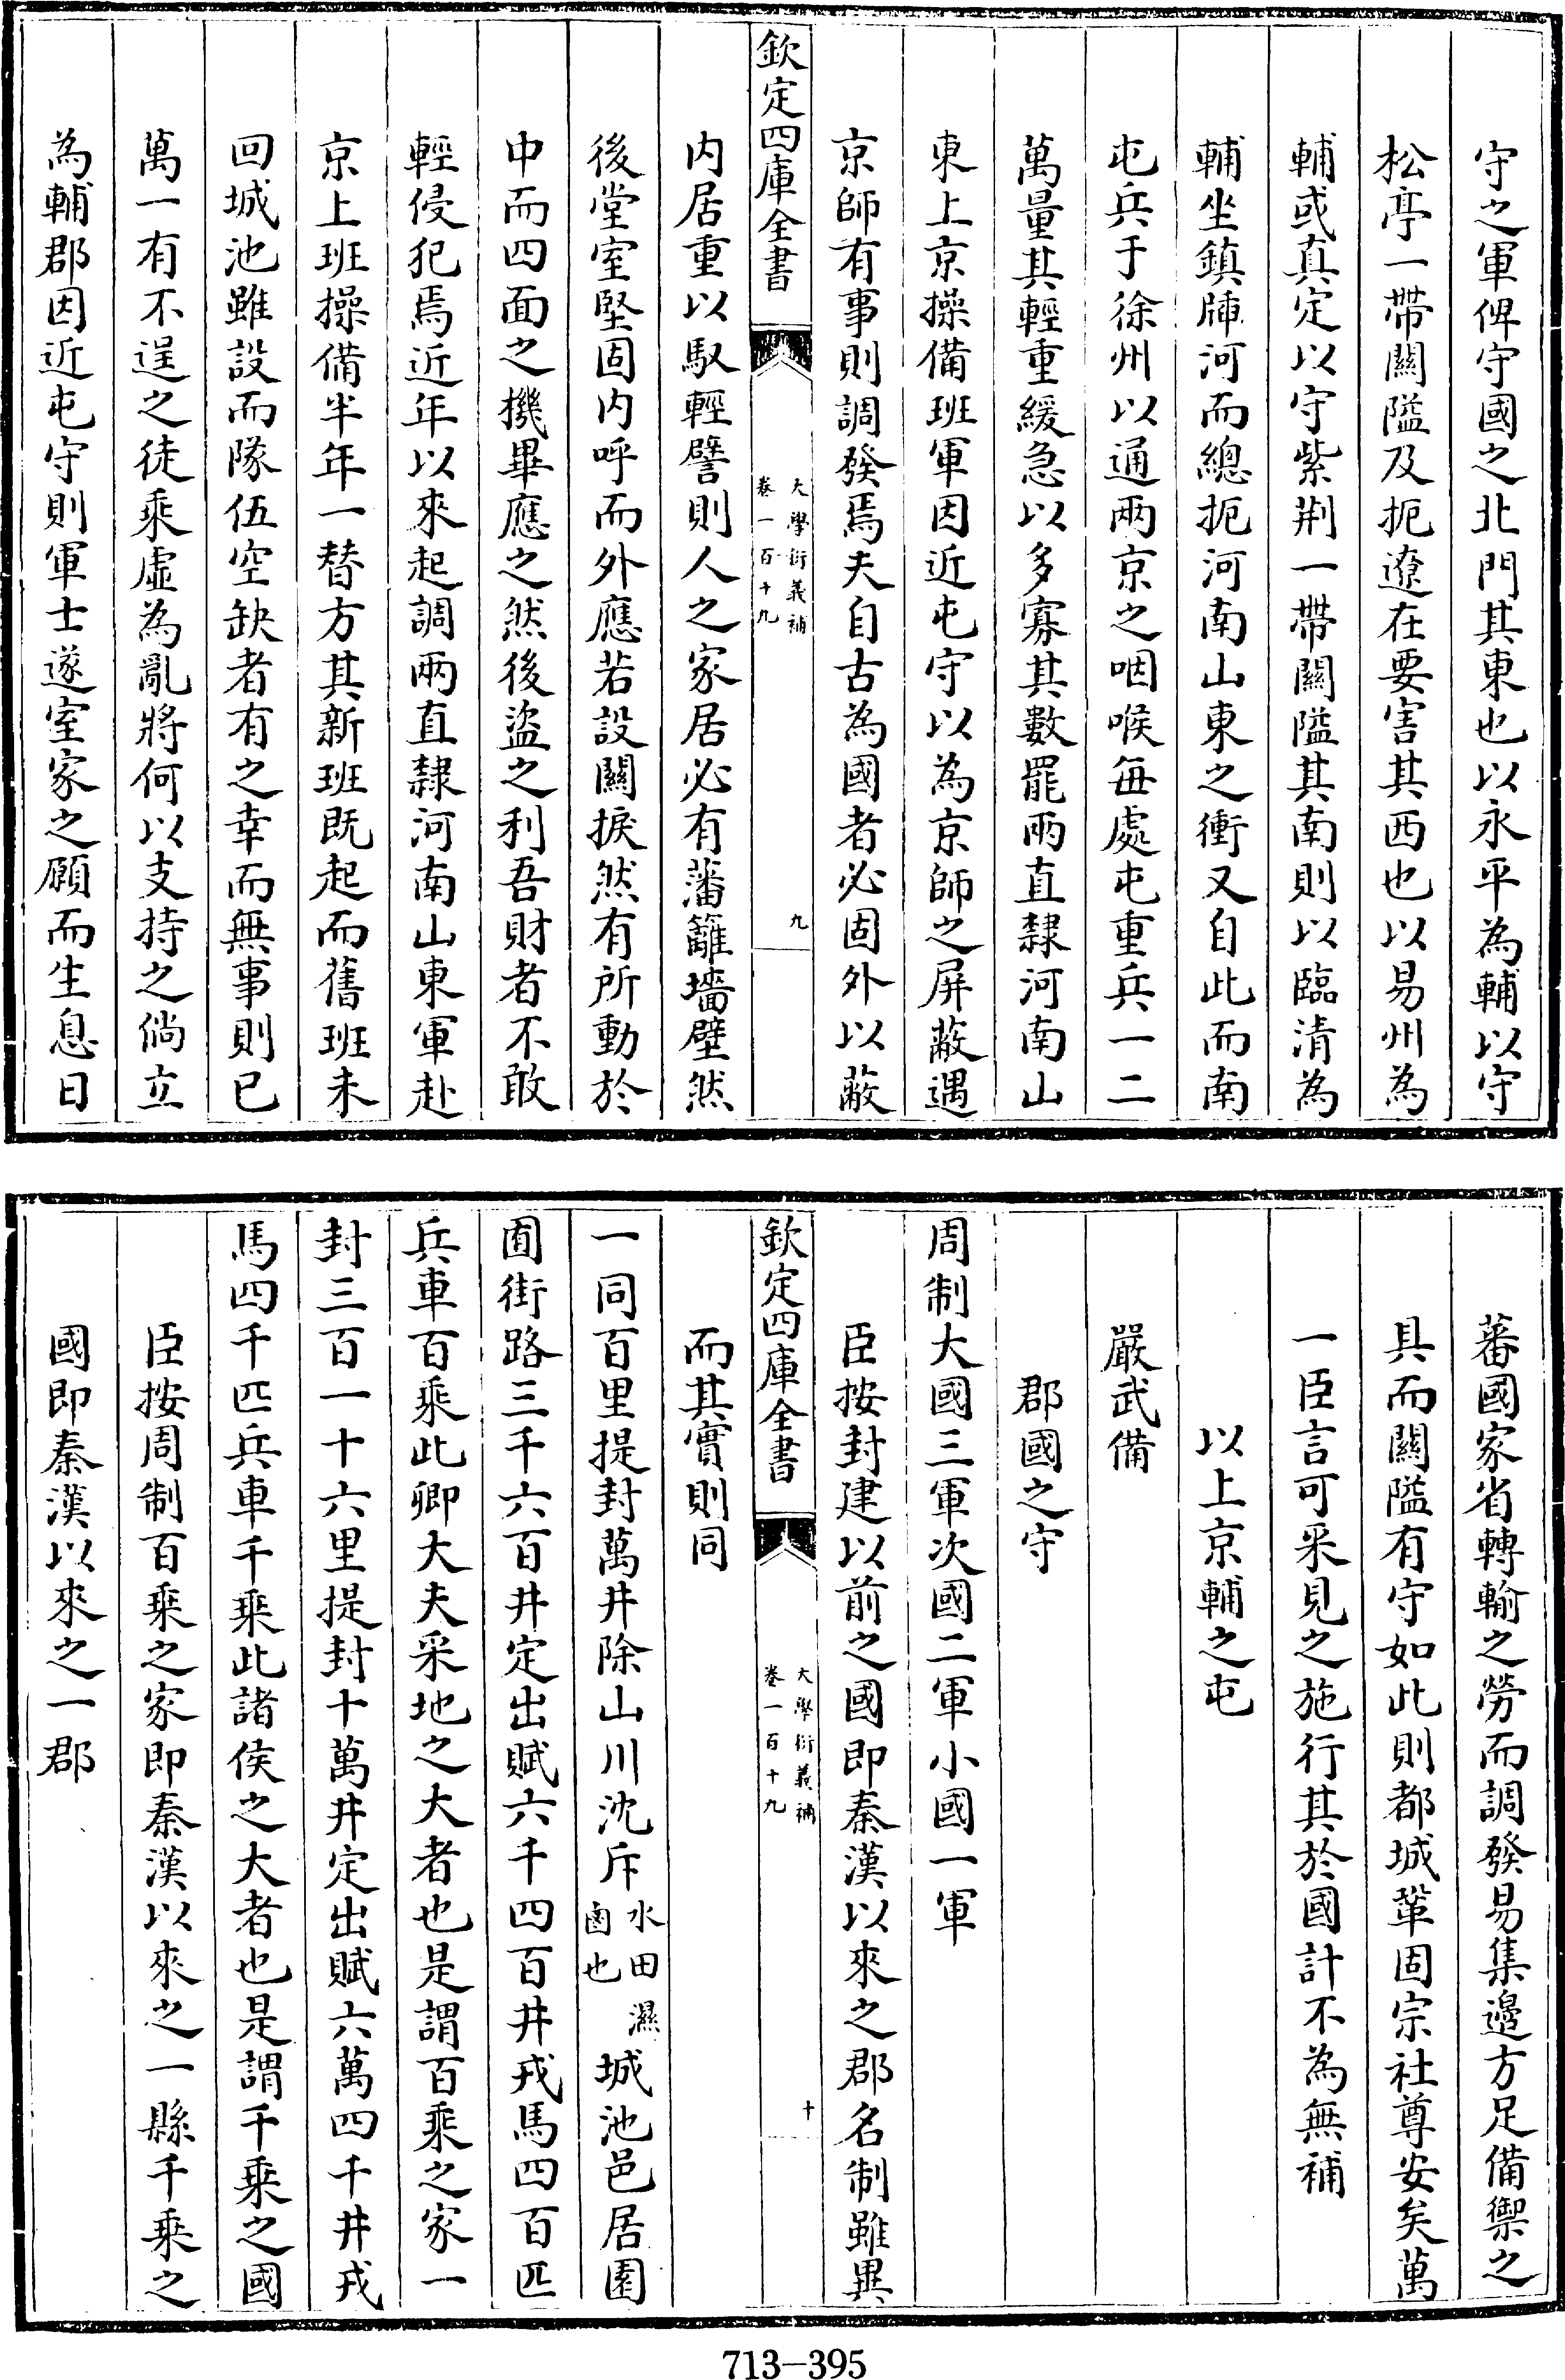 守之軍俾守國之北門其東也以永平為輔以守
松亭一帶關隘及扼遼在要害其西也以易州為
輔或真定以守紫荆一帶關隘其南則以臨清為
輔坐鎮牐河而總扼河南山東之衝又自此而南
屯兵于徐州以通兩京之咽喉每處屯重兵一二
萬量其輕重緩急以多寡其數罷兩直隸河南山
東上京操備班軍因近屯守以為京師之屏蔽遇
京師有事則調發焉夫自古為國者必固外以蔽
欽定四庫全書
大學衍義補
卷一百十九
九
内居重以馭輕譬則人之家居必有藩籬墻壁然
後堂室堅固内呼而外應若設關捩然有所動於
中而四面之機畢應之然後盜之利吾財者不敢
輕侵犯焉近年以來起調兩直隸河南山東軍赴
京上班操備半年一替方其新班既起而舊班未
回城池雖設而隊伍空缺者有之幸而無事則已
萬一有不逞之徒乘虛為亂將何以支持之倘立
為輔郡因近屯守則軍士遂室家之願而生息日
蕃國家省轉輸之勞而調發易集邊方足備禦之
具而關隘有守如此則都城鞏固宗社尊安矣萬
一臣言可采見之施行其於國計不為無補
以上京輔之屯
嚴武備
郡國之守
周制大國三軍次國二軍小國一軍
臣按封建以前之國即秦漢以來之郡名制雖異
欽定四庫全書
大學衍義補
卷一百十九
十
而其實則同
一同百里提封萬井除山川沈斥水田濕鹵也城池邑居園
囿街路三千六百井定出賦六千四百井戎馬四百匹
兵車百乘此卿大夫采地之大者也是謂百乘之家一
封三百一十六里提封十萬井定出賦六萬四千井戎
馬四千匹兵車千乘此諸侯之大者也是謂千乘之國
臣按周制百乘之家即秦漢以來之一縣千乘之
國即秦漢以來之一郡
713-395